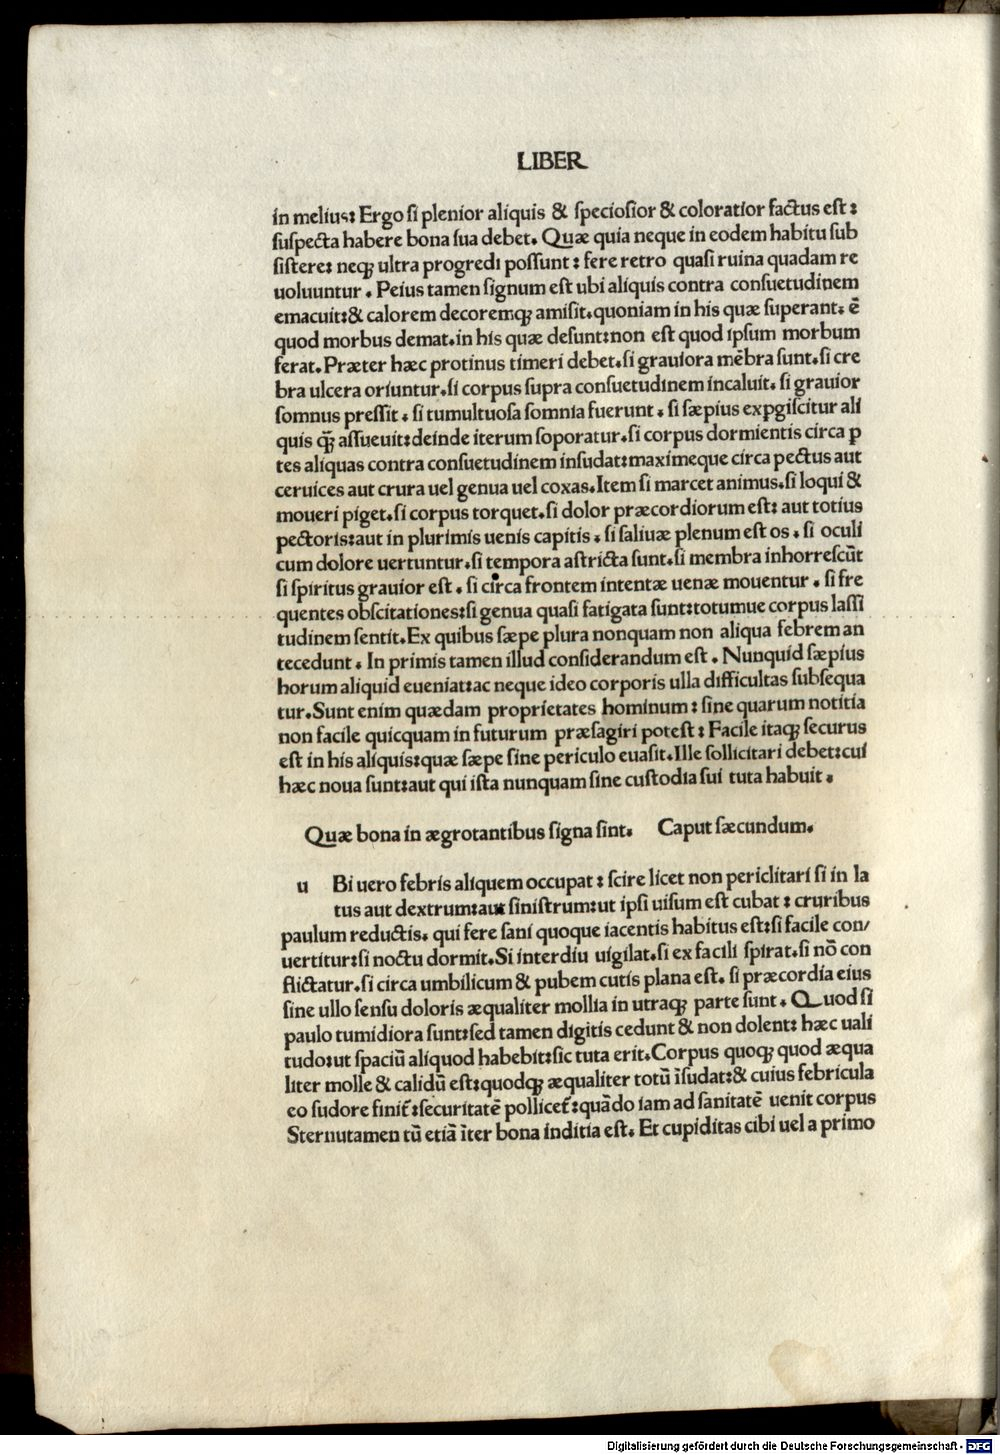 LIBER
in melius: Ergo si plenior aliquis & speciosior & coloratior factus est:
suspecta habere bona sua debet. Quæ quia neque in eodem habitu sub
sistere: neqꝫ ultra progredi possunt: fere retro quasi ruina quadam re
uoluuntur. Peius tamen signum est ubi aliquis contra consuetudinem
emacuit:& calorem decoremqꝫ amisit.quoniam in his quæ superant. ē
quod morbus demat.in his quæ desunt:non est quod ipsum morbum
ferat.Præter hæc protinus timeri debet.si grauiora mēbra sunt.si cre
bra ulcera oriuntur.si corpus supra consuetudinem incaluit. si grauior
somnus pressit. si tumultuosa somnia fuerunt. si sæpius expgiscitur ali
quis q̄ꝫ assueuit:deinde iterum soporatur.si corpus dormientis circa p
tes aliquas contra consuetudinem insudat:maximeque circa pectus aut
ceruices aut crura uel genua uel coxas.Item si marcet animus.si loqui &
moueri piget.si corpus torquet.si dolor præcordiorum est: aut totius
pectoris:aut in plurimis uenis capitis. si saliuæ plenum est os. si oculi
cum dolore uertuntur.si tempora astricta sunt.si membra inhorrescūt
si spiritus grauior est. si circa frontem intentæ uenæ mouentur. si fre
quentes obscitationes:si genua quasi fatigata sunt:totumue corpus lassi
tudinem sentit.Ex quibus sæpe plura nonquam non aliqua febrem an
tecedunt. In primis tamen illud considerandum est. Nunquid sæpius
horum aliquid eueniat:ac neque ideo corporis ulla difficultas subsequa
tur.Sunt enim quædam proprietates hominum: sine quarum notitia
non facile quicquam in futurum præsagiri potest: Facile itaqꝫ securus
est in his aliquis:quæ sæpe sine periculo euasit.Ille sollicitari debet:cui
hæc noua sunt:aut qui ista nunquam sine custodia sui tuta habuit.
Quæ bona in ægrotantibus signa sint. Caput sæcundum.
u Bi uero febris aliquem occupat: scire licet non periclitari si in la
tus aut dextrum:aut sinistrum:ut ipsi uisum est cubat: cruribus
paulum reductis. qui fere sani quoque iacentis habitus est:si facile con/
uertitur:si noctu dormit.Si interdiu uigilat.si ex facili spirat.si nō con
flictatur.si circa umbilicum & pubem cutis plana est. si præcordia eius
sine ullo sensu doloris æqualiter mollia in utraqꝫ parte sunt. Quod si
paulo tumidiora sunt:sed tamen digitis cedunt & non dolent: hæc uali
tudo:ut spaciū aliquod habebit:sic tuta erit.Corpus quoqꝫ quod æqua
liter molle & calidū est:quodqꝫ æqualiter totū īsudat:& cuius febricula
eo sudore finit̄:securitatē pollicet̄:quādo iam ad sanitatē uenit corpus
Sternutamen tū etiā īter bona inditia est. Et cupiditas cibi uel a primo
Digitalisierung gefördert durch die Deutsche Forschungsgemeinschaft - DFG